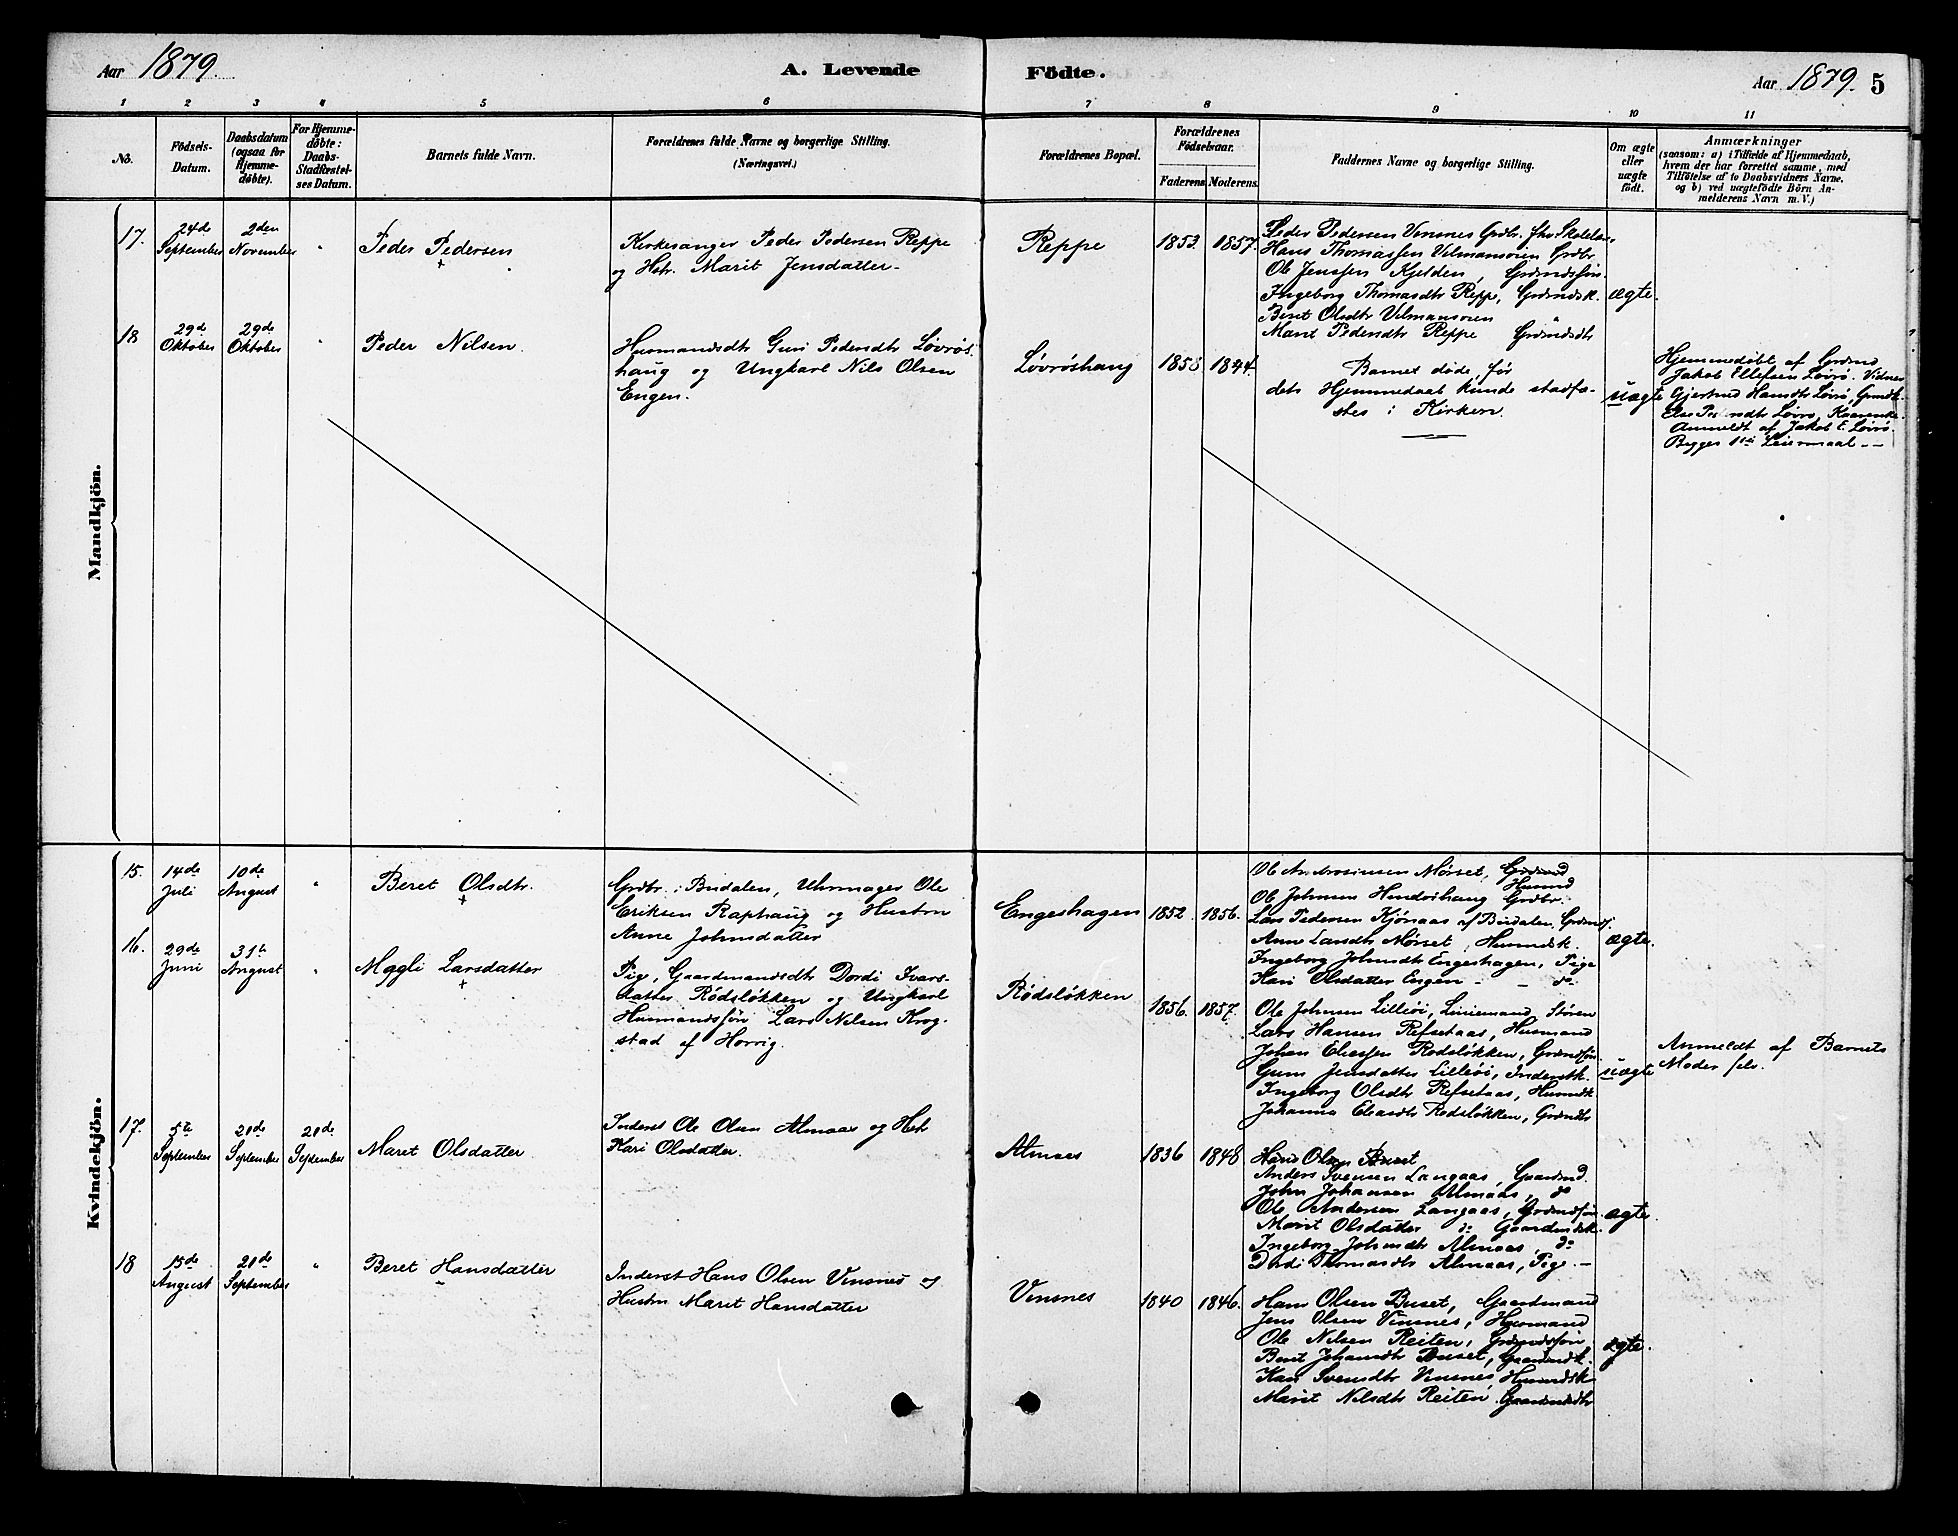 Aar 1879.
A. Levende
Födte.
Aar 1879. 5
1 2 3 4 5 6 7 8 9 10 11
No.
Födsels-
Datum.
Daabsdatum
(ogsaa for
Hjemme-
döbte).
For Hjemme-
döbte:
Daabs-
Stadfæstel-
ses Datum.
Barnets fulde Navn.
Forældrenes fulde Navne og borgerlige Stilling.
(Næringsvei.)
Forældrenes Bopæl.
Forældrenes
Födselsaar.
Faderens Moderens
Faddernes Navne og borgerlige Stilling.
Om ægte
eller
uægte
födt.
Anmærkninger
(saasom: a) i Tilfælde af Hjemmedaab,
hvem der har forrettet samme, med
Tilföielse af to Daabsvidners Navne,
og b) ved uægtefödte Börn An-
melderens Navn m. V.)
Mandkjön.
17.
24de
September
2den
November
"
Peder Pedersen
+
Kirkesanger Peder Pedersen Reppe
og Hstr. Marit Jensdatter
Reppe
1853. 1857.
Peder Pedersen Vinsnes Grdbr. fhv. Skolelær.
Hans Thomassen Vilmansøien Grdbr.
Ole Jenssen Kjelden, Grdmdsøn.
Ingeborg Thomasdtr Reppe, Grdmdsk.
Berit Olsdtr Vilmansøien "
Marit Pedersdtr Reppe Grdmdsdtr
ægte.
18
29de
Oktober
29de
Oktober
"
Peder Nilsen
Husmandsdtr Guri Pedersdtr Løvrøs
haug og Ungkarl Nils Olsen
Engen.
Løvrøshaug
1858 1844.
Barnet døde, før
dets Hjemmedaab kunde stadfæ-
stes i Kirken.
uægte
Hjemmedøbt af Grdmd
Jakob Ellefsen Løvrø. Vidner
Gjertrud Hansdtr Løvrø, Grmdk.
Else Pedersdtr Løvrø, Kaarenke
Anmeldt af Jakob E. Løvrø.
Begges 1ste Leiermaal
Kvindekjön.
15.
14de
Juli
10de
August
"
Beret Olsdtr.
+
Grdbr. i Budalen, Uhrmager Ole
Eriksen Raphaug og Hustru
Anne Johnsdatter
Engeshagen
1852. 1856.
Ole Andreasen Mørset, Grdmd
Husmd
Ole Johnsen Hindrishaug Grdbr.
Lars Pedersen Kjønaas af Budalen, Grdmds.
Ane Larsdtr Mørset, Husmdsk.
Ingeborg Johnsdtr Engeshagen, Pige
Kari Olsdatter Engen - - do.
ægte.
16.
29de
Juni
31te
August
"
Magli Larsdatter
+
Pige, Gaardmandsdtr Dordi Ivars-
datter Rödsløkken og Ungkarl
Husmandssøn Lars Nilsen Krog-
stad af Horrig.
Rødsløkken
1856. 1857.
Ole Johnsen Lilleøi, Liniemand, Støren
Lars Hansen Refsetaas, Husmand
Johan Eliassen Rødsløkken, Grdmdsøn.
Guru Jensdatter Lilleöi, Inderstk.
Ingeborg Olsdtr Refsetaas, Husmdk
Johanna Eliasdtr Rødsløkken, Grdmdtr
uægte
Anmeldt af Barnets
Moder selv.
17.
5te
September
20de
September
20de
September
Maret Olsdatter
Inderst Ole Olsen Almaas og Hstr
Kari Olsdatter.
Almaas
1836 1848
Hans Olsen Buset
Anders Svensen Langaas, Gaardmd.
John Johansen Almaas, do
Ole Andersen Langaas, Grdmdsøn
Marit Olsdatter do Gaardmdsk.
Ingeborg Johnsdtr Almaas, do
Dordi Thomasdtr Almaas, Pige.
ægte.
18
15de
August
20de
September
"
Beret Hansdatter
Inderst Hans Olsen Vinsnes og
Hustru Maret Hansdatter
Vinsnes
1840 1846.
Hans Olsen Buset, Gaardmand
Jens Olsen Vinsnes, Husmand
Ole Nilsen Reiten, Grdmdssøn
Berit Johansdtr Buset, Gaardmdk.
Kari Svendsdtr Vinsnes, Husmdsk
Marit Nilsdtr Reiten Gaardmdsdtr
ægte.